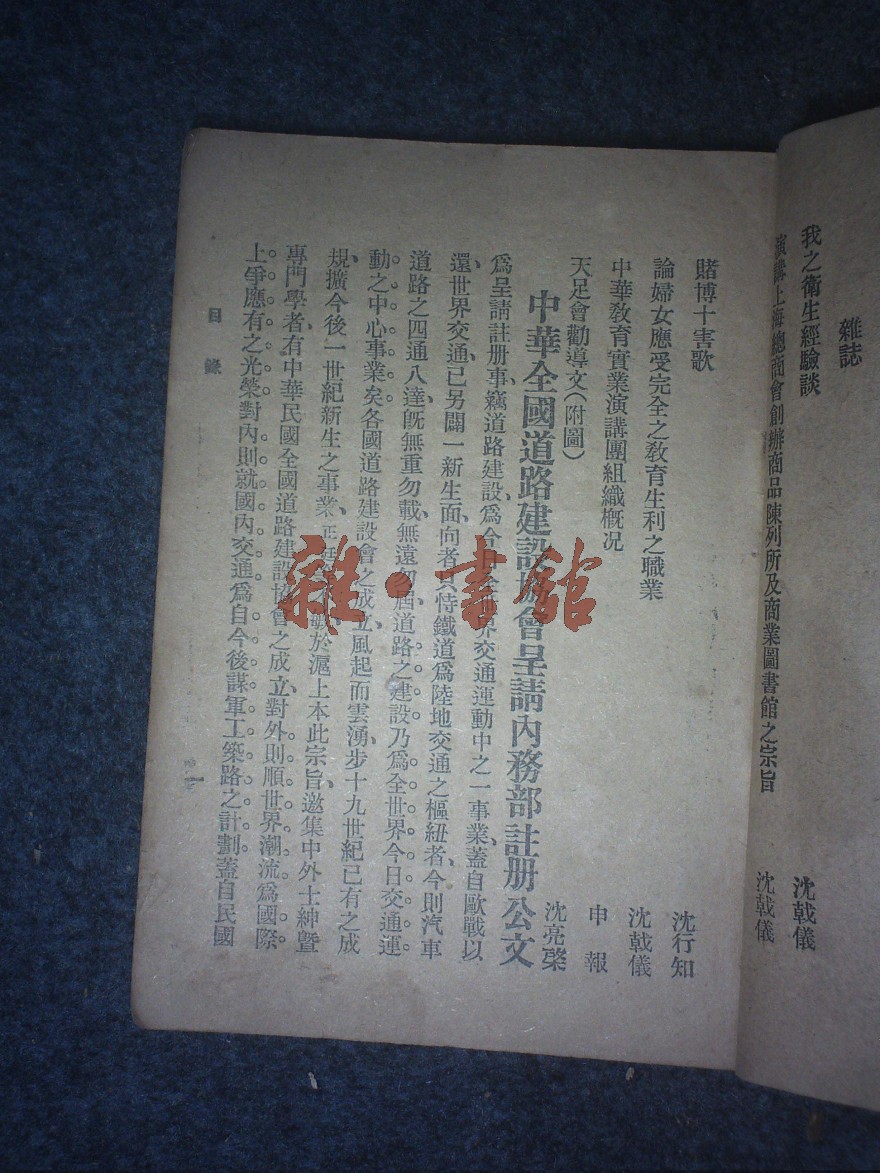 雜誌
我之衛生經驗談 沈戟儀
演講上海總商會創辦商品陳列所及商業圖書館之宗旨 沈戟儀
賭博十害歌 沈行知
論婦女應受完全之教育生利之職業 沈戟儀
中華教育實業演講團組織概况 申報
天足會勸導文(附圖) 沈亮棨
中華全國道路建設協會呈請內務部註册公文
爲呈請註册事、竊道路建設、爲今日全世界交通運動中之一事業、蓋自歐戰以
還、世界交通、已另闢一新生面、向者只恃鐵道爲陸地交通之樞紐者、今則汽車
道路之四通八達、旣無重勿載、無遠勿屆、道路之建設、乃爲全世界今日交通運
動之中心事業矣、各國道路建設會之成立、風起而雲湧、步十九世紀已有之成
規、擴今後一世紀新生之事業、正
於滬上、本此宗旨、邀集中外士紳曁
專門學者、有中華民國全國道路建設協會之成立、對外則順世界潮流、爲國際
上爭應有之光榮、對內則就國內交通、爲自今後謀軍工築路之計劃、蓋自民國
目錄
一
雜·書館